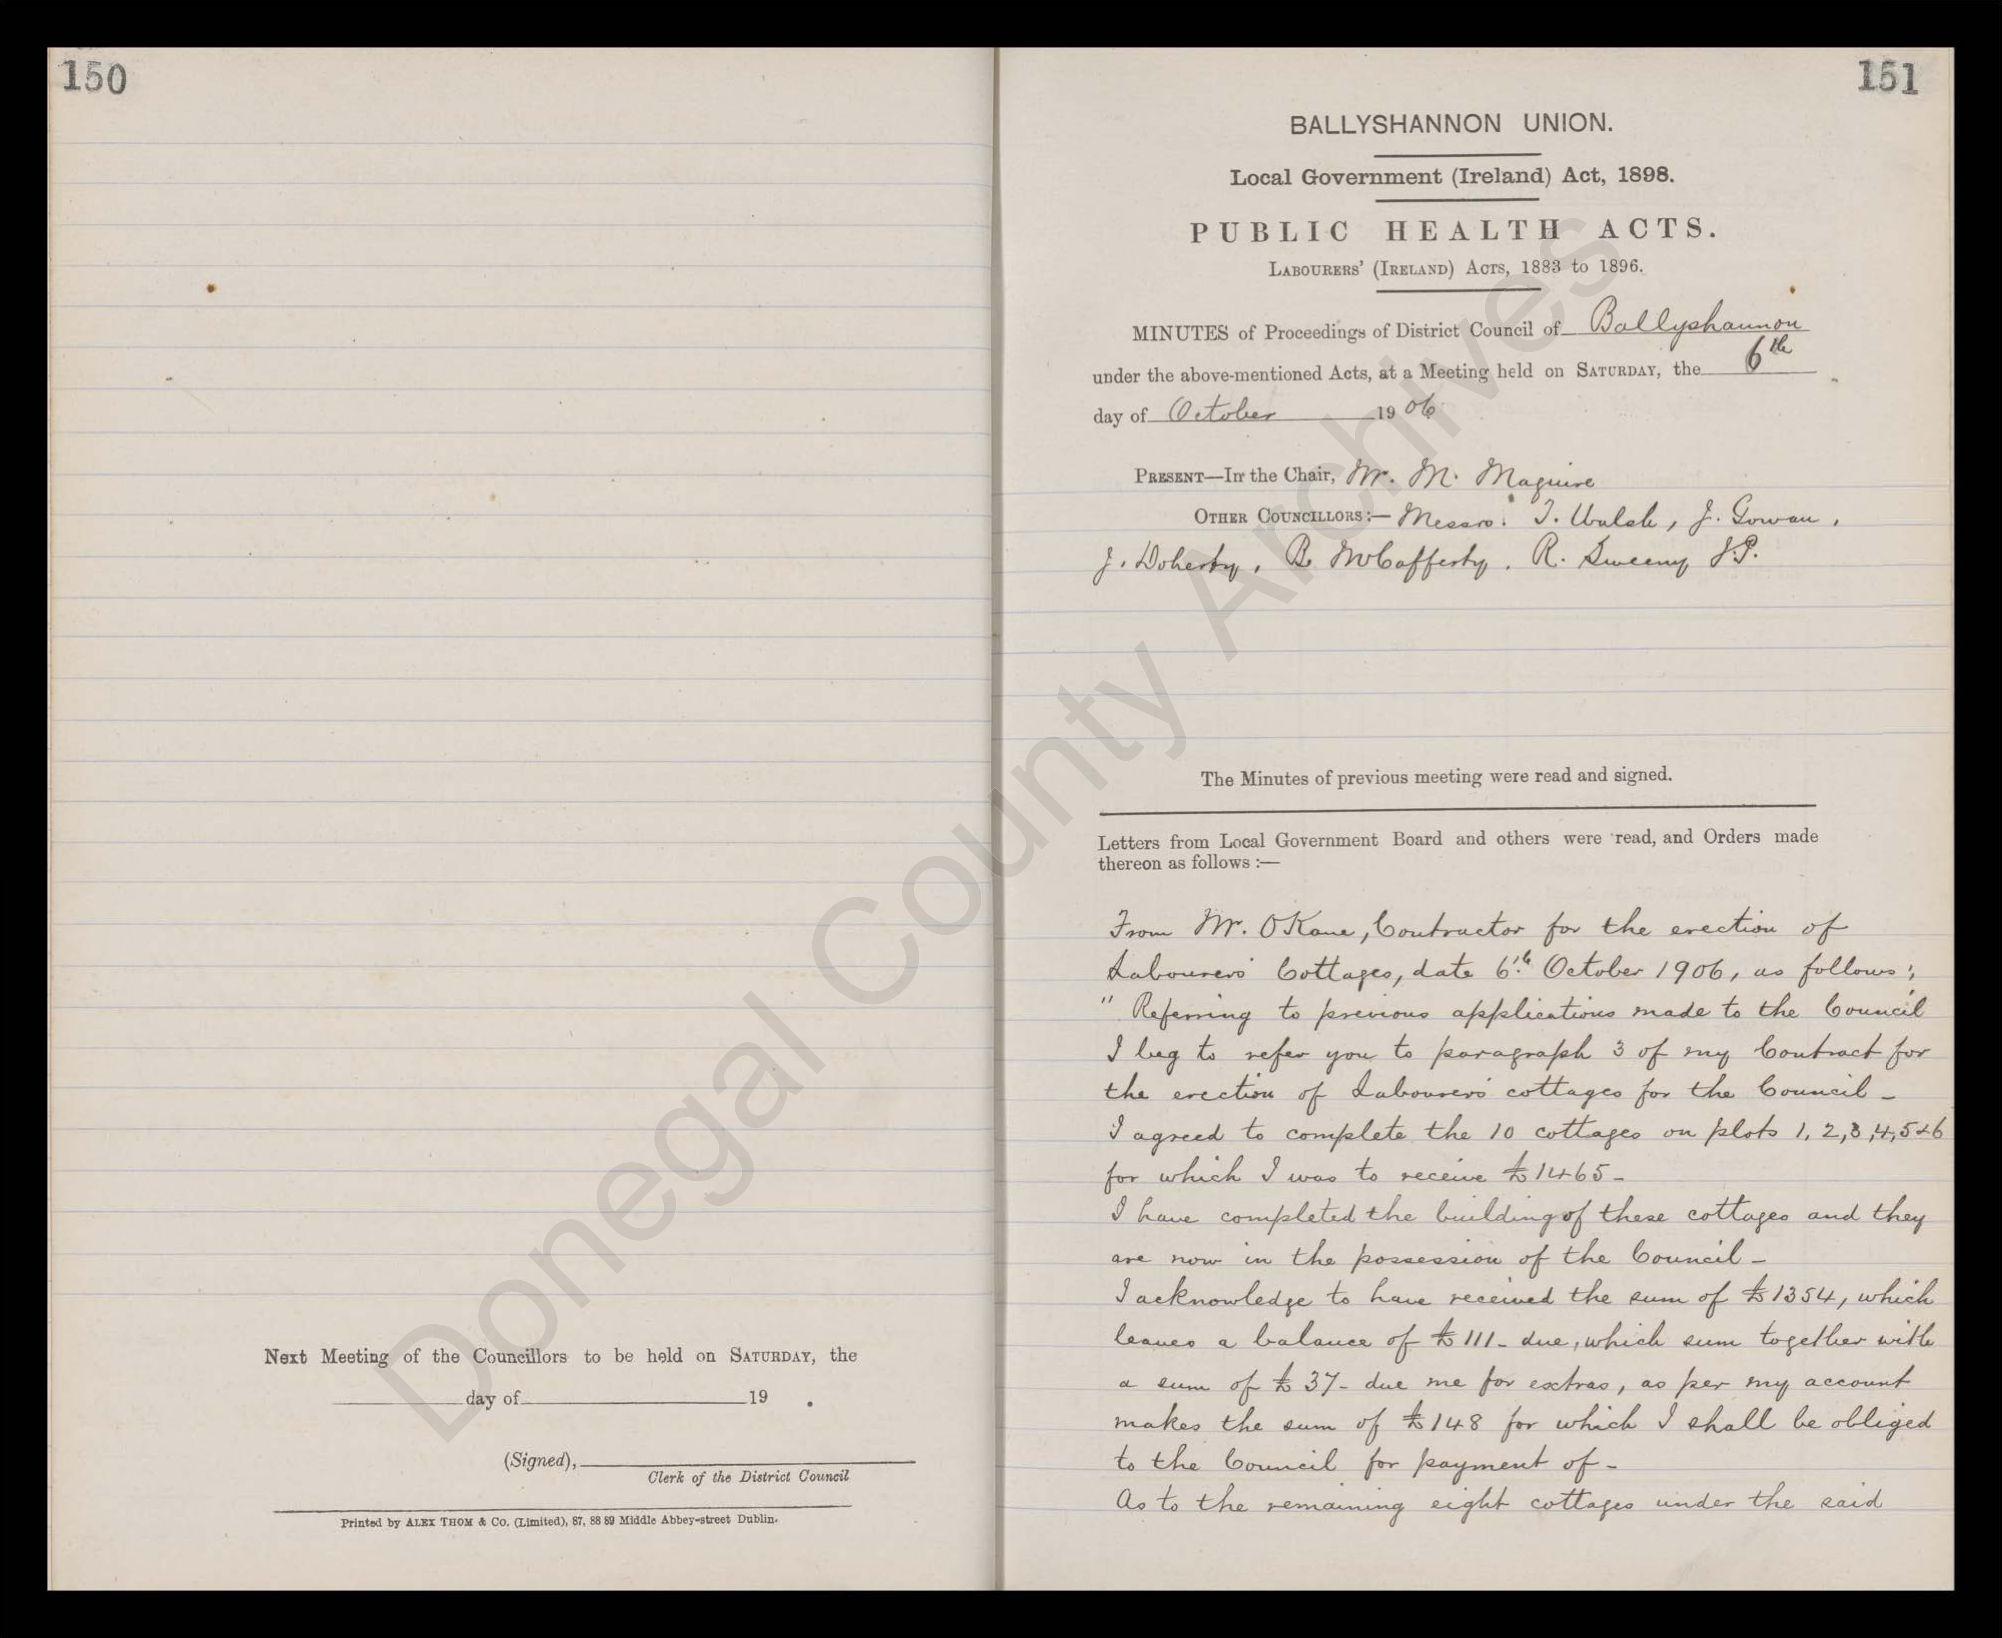 150
Next Meeting of the Councillors to be held on SATURDAY, the
day of 19 .
(Signed),
Clerk of the District Council
Printed by ALEX THOM & Co. (Limited), 87, 88 89 Middle Abbey-street Dublin.
151
BALLYSHANNON UNION.
Local Government (Ireland) Act, 1898.
PUBLIC HEALTH ACTS.
LABOURERS' (IRELAND) ACTS, 1883 to 1896.
MINUTES of Proceedings of District Council of Ballyshannon
under the above-mentioned Acts, at a Meeting held on SATURDAY, the 6th
day of October 1906
PRESENT—In the Chair, Mr. M. Maguire
OTHER COUNCILLORS:— Messrs. T. Walsh, J. Gowan,
J. Doherty, B. McCafferty, R. Sweeny J.P.
The Minutes of previous meeting were read and signed.
Letters from Local Government Board and others were read, and Orders made
thereon as follows :—
From Mr. O'Kane, Contractor for the erection of
Labourers' Cottages, date 6th October 1906, as follows:
" Referring to previous applications made to the Council
I beg to refer you to paragraph 3 of my Contract for
the erection of Labourers' cottages for the Council -
I agreed to complete the 10 cottages on plots 1, 2, 3, 4, 5 & 6
for which I was to receive £1465 -
I have completed the building of these cottages and they
are now in the possession of the Council -
I acknowledge to have received the sum of £1354, which
leaves a balance of £111 - due, which sum together with
a sum of £37 - due me for extras, as per my account
makes the sum of £148 for which I shall be obliged
to the Council for payment of -
As to the remaining eight cottages under the said
Donegal County Archives